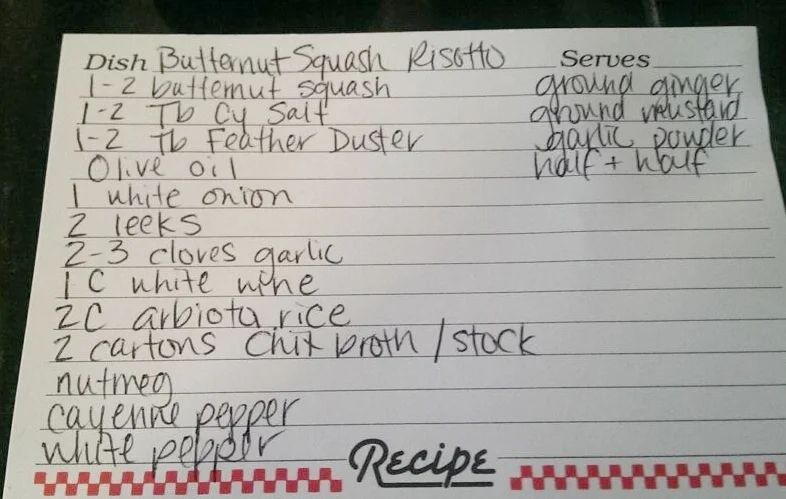 Dish Butternut Squash Risotto Serves
1-2 butternut squash
1-2 Tb Cy Salt
1-2 Tb Feather Duster
Olive oil
1 white onion
2 leeks
2-3 cloves garlic
1 C white wine
2C arbiota rice
2 cartons Chix broth / stock
nutmeg
cayenne pepper
white pepper
ground ginger
ground mustard
garlic powder
half + half
Recipe